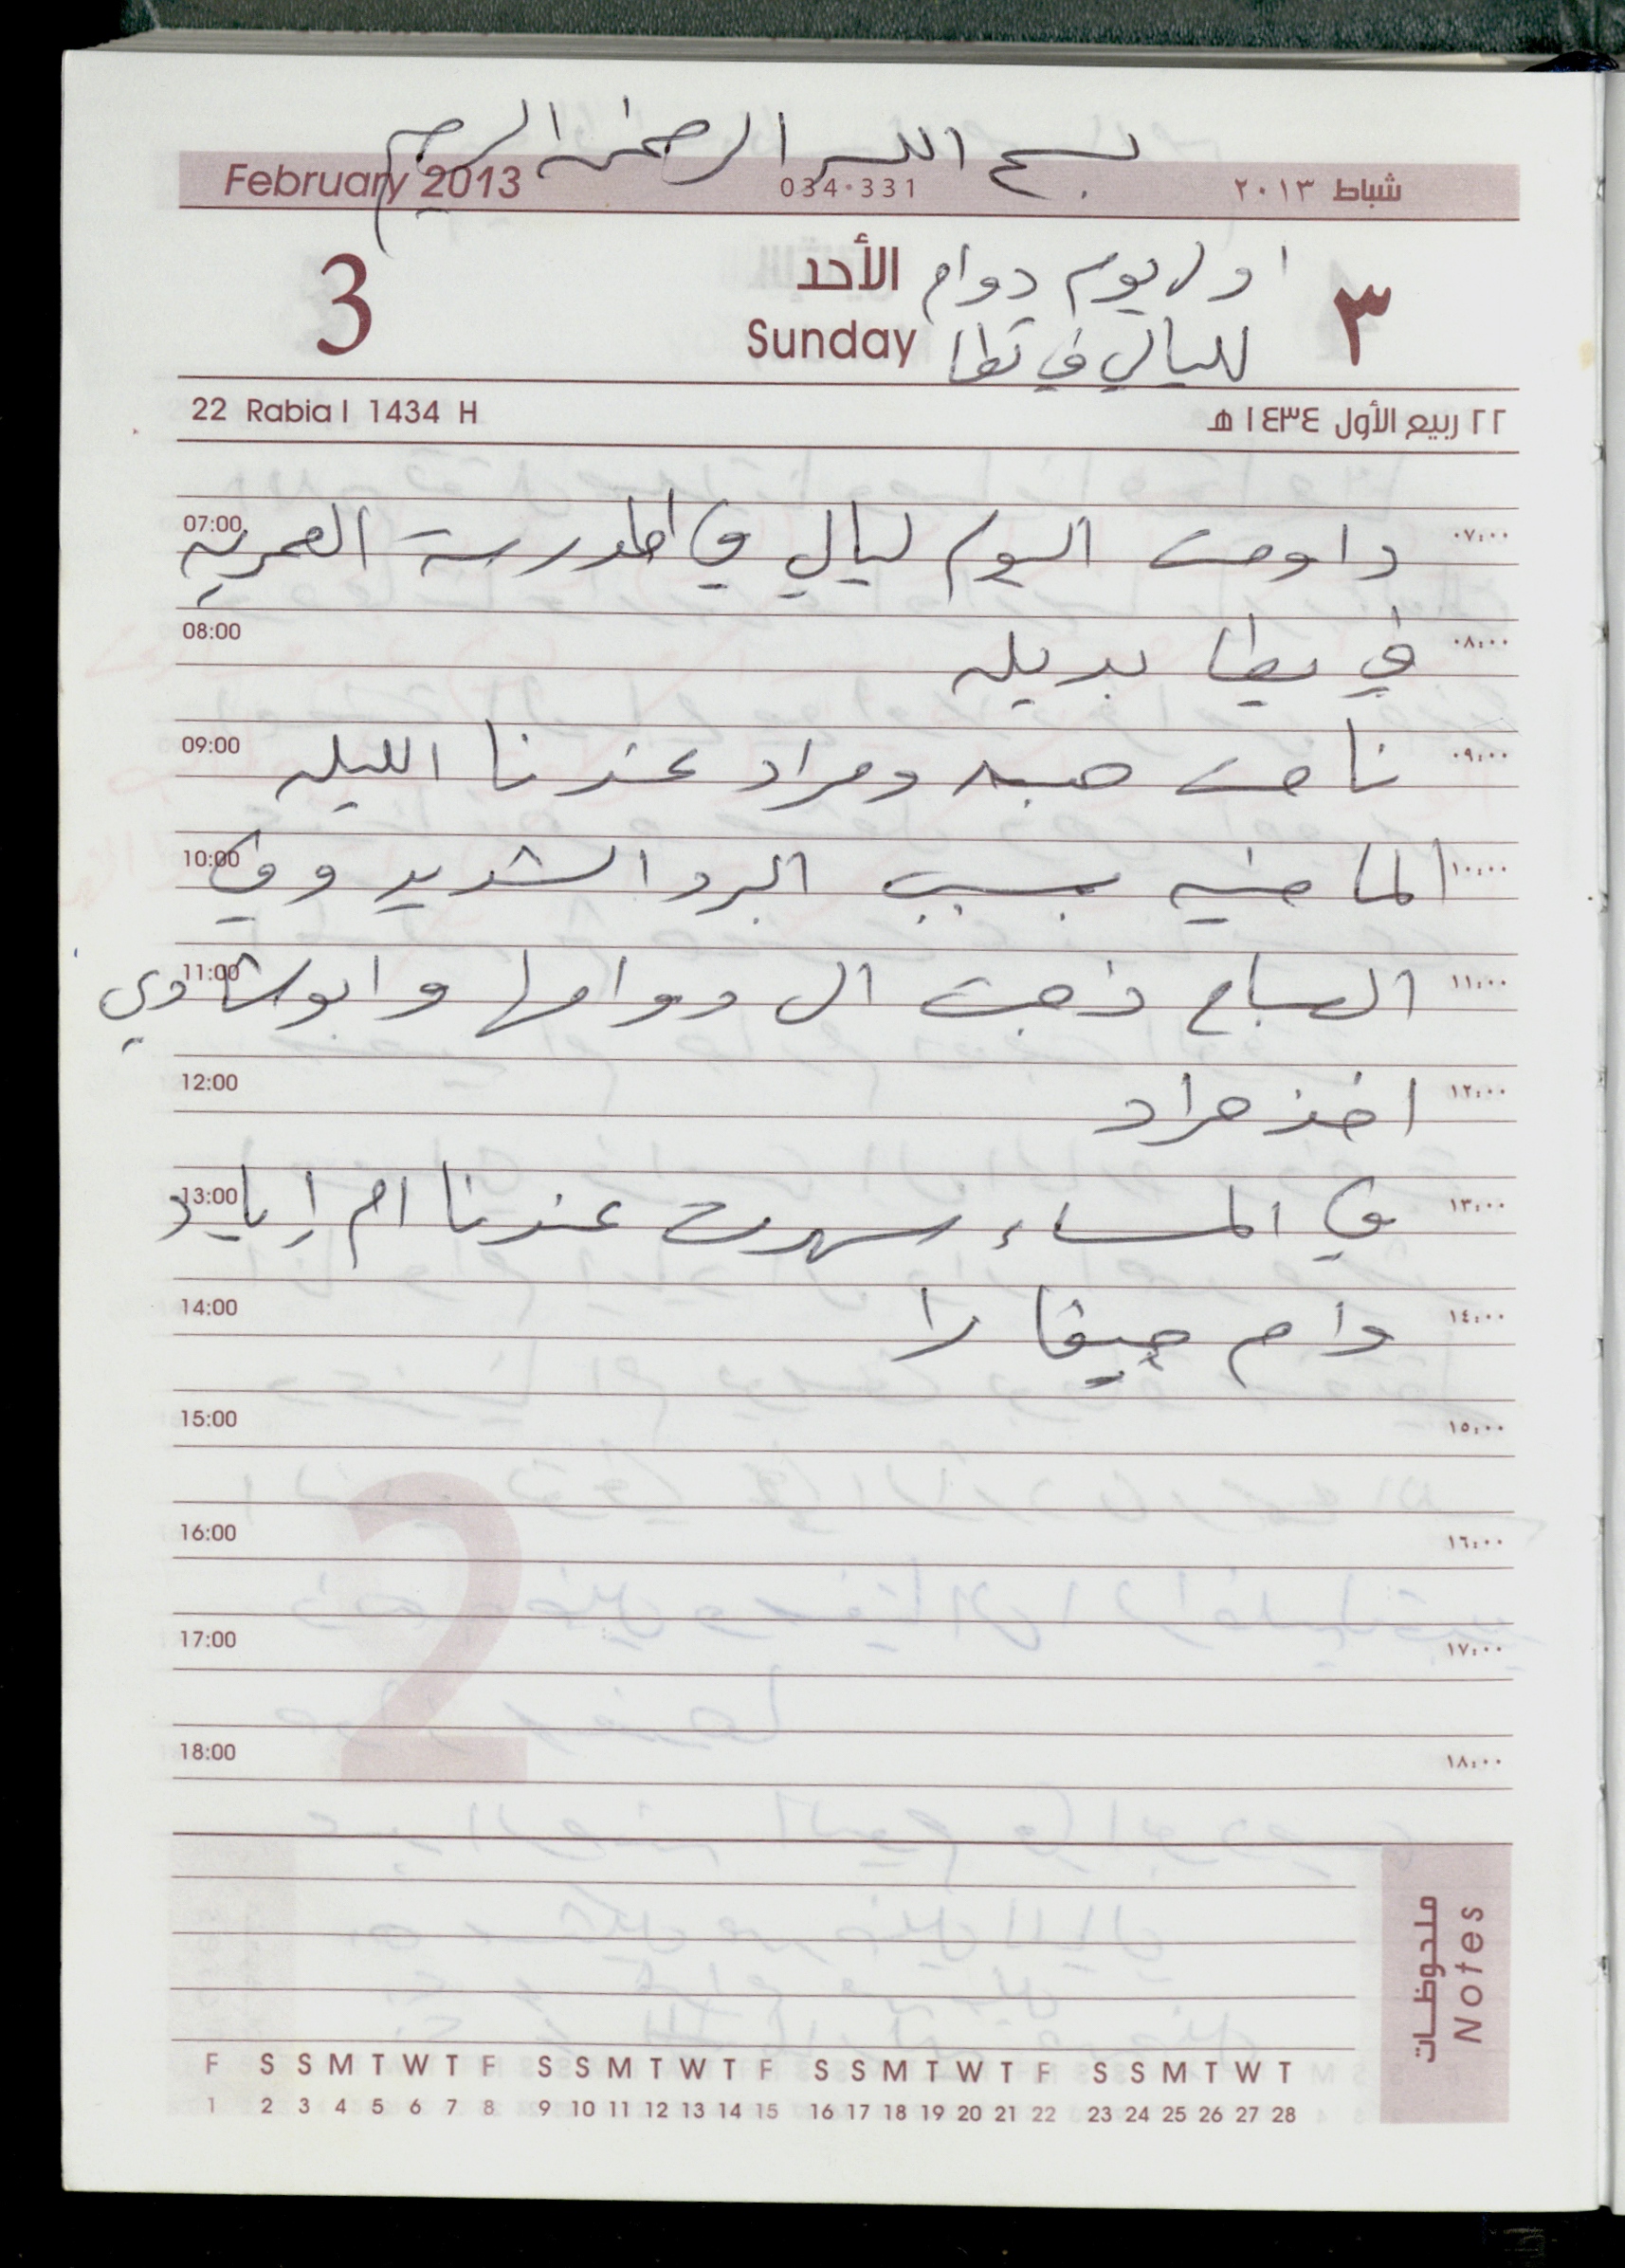 بسم الله الرحمن الرحيم
February 2013 034·331 شباط ٢٠١٣
3 الأحد اول يوم دوام ٣
Sunday لليالي في تطا
22 Rabia I 1434 H ٢٢ ربيع الأول ١٤٣٤ هـ
07:00 داومت اليوم ليالي في المدرسة العمريه ٠٧:٠٠
08:00 في يطا بديله ٠٨:٠٠
09:00 نامت هبه ومراد عندنا الليله ٠٩:٠٠
10:00 الماضيه بسبب البرد الشديد وفي ١٠:٠٠
11:00 الصباح ذهبت ال دوامها وابو شادي ١١:٠٠
12:00 اخذ مراد ١٢:٠٠
13:00 في المساء سهرت عندنا ام إياد ١٣:٠٠
14:00 وام ١٤:٠٠
15:00 ١٥:٠٠
16:00 ١٦:٠٠
17:00 ١٧:٠٠
18:00 ١٨:٠٠
ملحوظات
Notes
F S S M T W T F S S M T W T F S S M T W T F S S M T W T
1 2 3 4 5 6 7 8 9 10 11 12 13 14 15 16 17 18 19 20 21 22 23 24 25 26 27 28